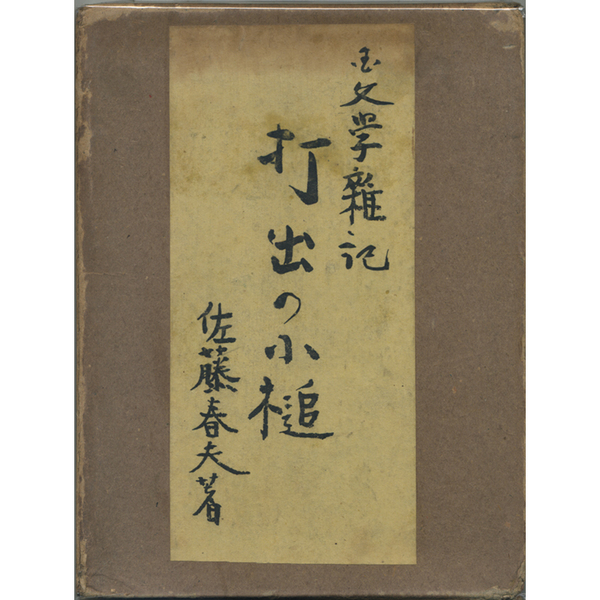 国文学雑記
打出の小槌
佐藤春夫著